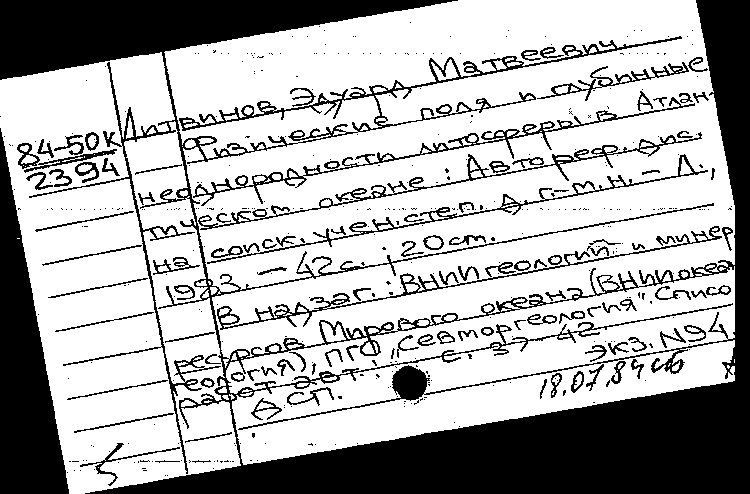 Литвинов, Эдуард Матвеевич.
84-50к
2394
Физические поля и глубинные
неоднородности литосферы в Атлан-
тическом океане : Автореф. дис.
на соиск. учен. степ. д. г.-м. н. - Л.,
1983. - 42 с. ; 20 см.
В надзаг. : ВНИИ геологий и минер
ресурсов Мирового океана (ВНИИокеа
геология), ПГО "Севморгеология". Списо
работ авт. : с. 37-42.
ДСП. Экз. N94.
18.07.84 сб